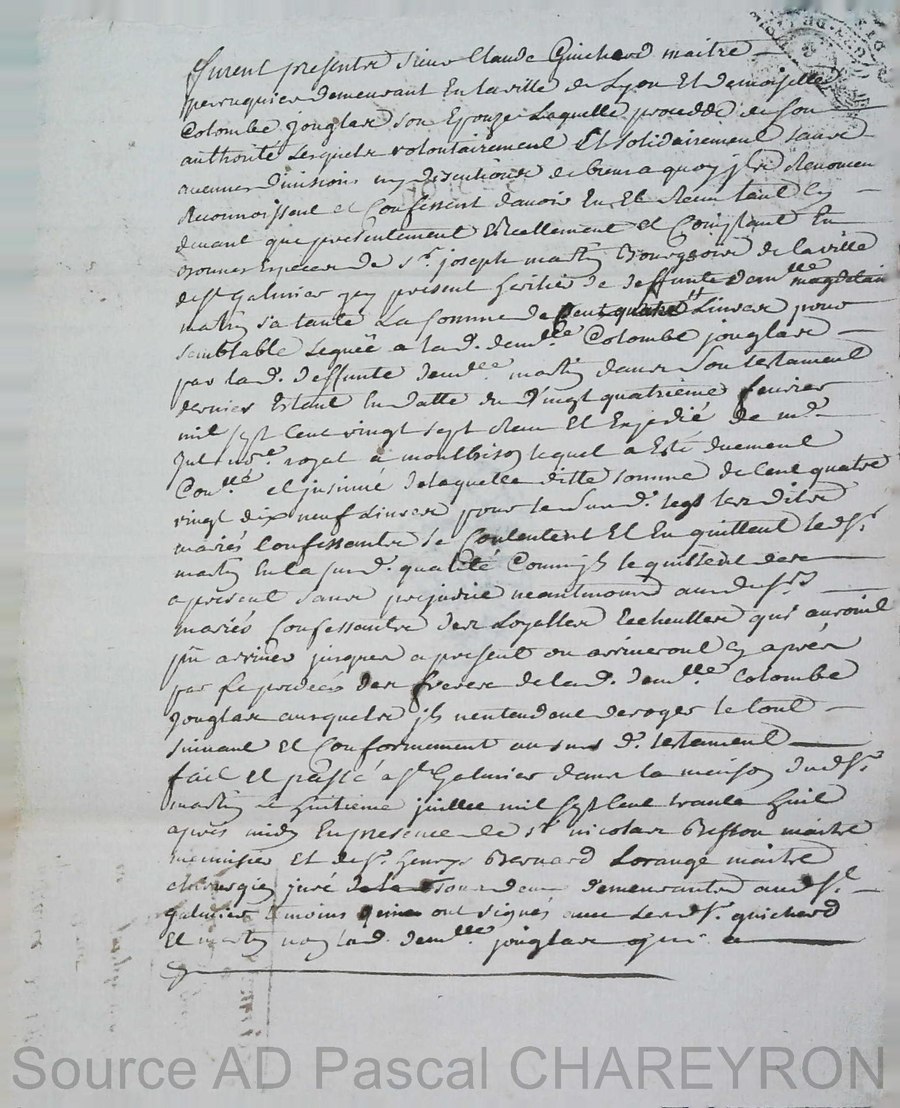 furent presents sieur Claude Guichard maitre
perruquier demeurant En la ville de Lyon Et demoiselle
Colombe jouglar son Epouze Laquelle procedde de son
authorité Lesquels volontairement Et solidairement sans
aucunes divisions ny discutions de biens a quoy jls Renoncent
Reconnoissent et Confessent d'avoir Eu Et Receu tant cy
devant que presentement Reellement et Comptant En
bonnes Especes de Sr. joseph martin Bourgeois de la ville
de St Galmier jcy present heritier de deffunte demlle magdelain
martin sa tante La somme de Cent quatre Livres pour
semblable Leguée a lad. demlle Colombe jouglar
par lad. deffunte demlle martin dans son testament
dernier Estant En datte du Vingt quatrieme fevrier
mil sept Cent vingt sept Receu Et Expedié de me
nore. royal a montbrison lequel a Esté duement
Conllé et jnsinué de laquelle ditte somme de Cent quatre
vingt dix neuf Livres pour le susd. legs les dits
mariés Confessants se Contentent Et En quittent led. Sr.
martin En la susd. qualité Comme jls le quittent dès
a present sans prejudice neantmoins auxd. Srs
mariés Confessants des Loyalles Escheuttes qui auroint
pu arriver jusques a present ou arriveront cy après
par le predeces des freres de lad. demlle Colombe
jouglar ausquels jls n'entendent deroger le tout
suivant Et Conformement au sus d. testament
fait Et passé a St Galmier dans la maison dud. Sr.
martin le huitieme juillet mil sept Cent trante huit
après midy En presence de Sr nicolas Besson maitre
menuisier et de Sr. Georges Bernard Lorange maitre
chirurgien juré demeurants aud. St.
Galmier temoins qui ont signés avec lesd. Sr. guichard
Et martin non lad. demlle jouglar qui a
Source AD Pascal CHAREYRON